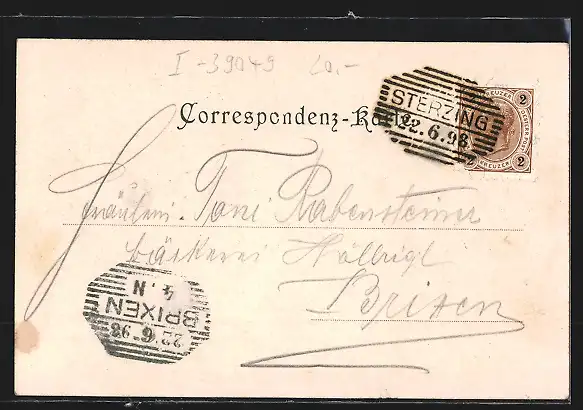 I-39049 20.-
Correspondenz-Karte
STERZING
22.6.98
KREUZER
2
2
2
KREUZER
Fräulein Toni Rabensteiner
Bäckerei Höllrigl
Brixen
BRIXEN
22 6 98
4. N